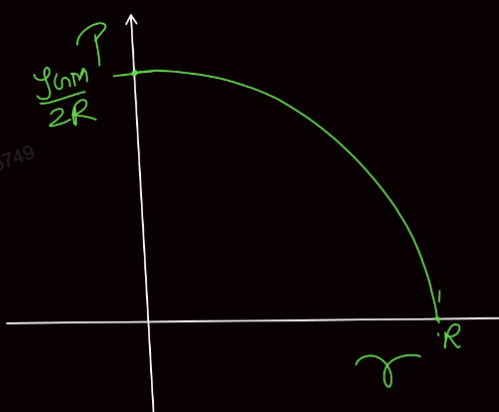 P
ρGM
2R
5749
R
r